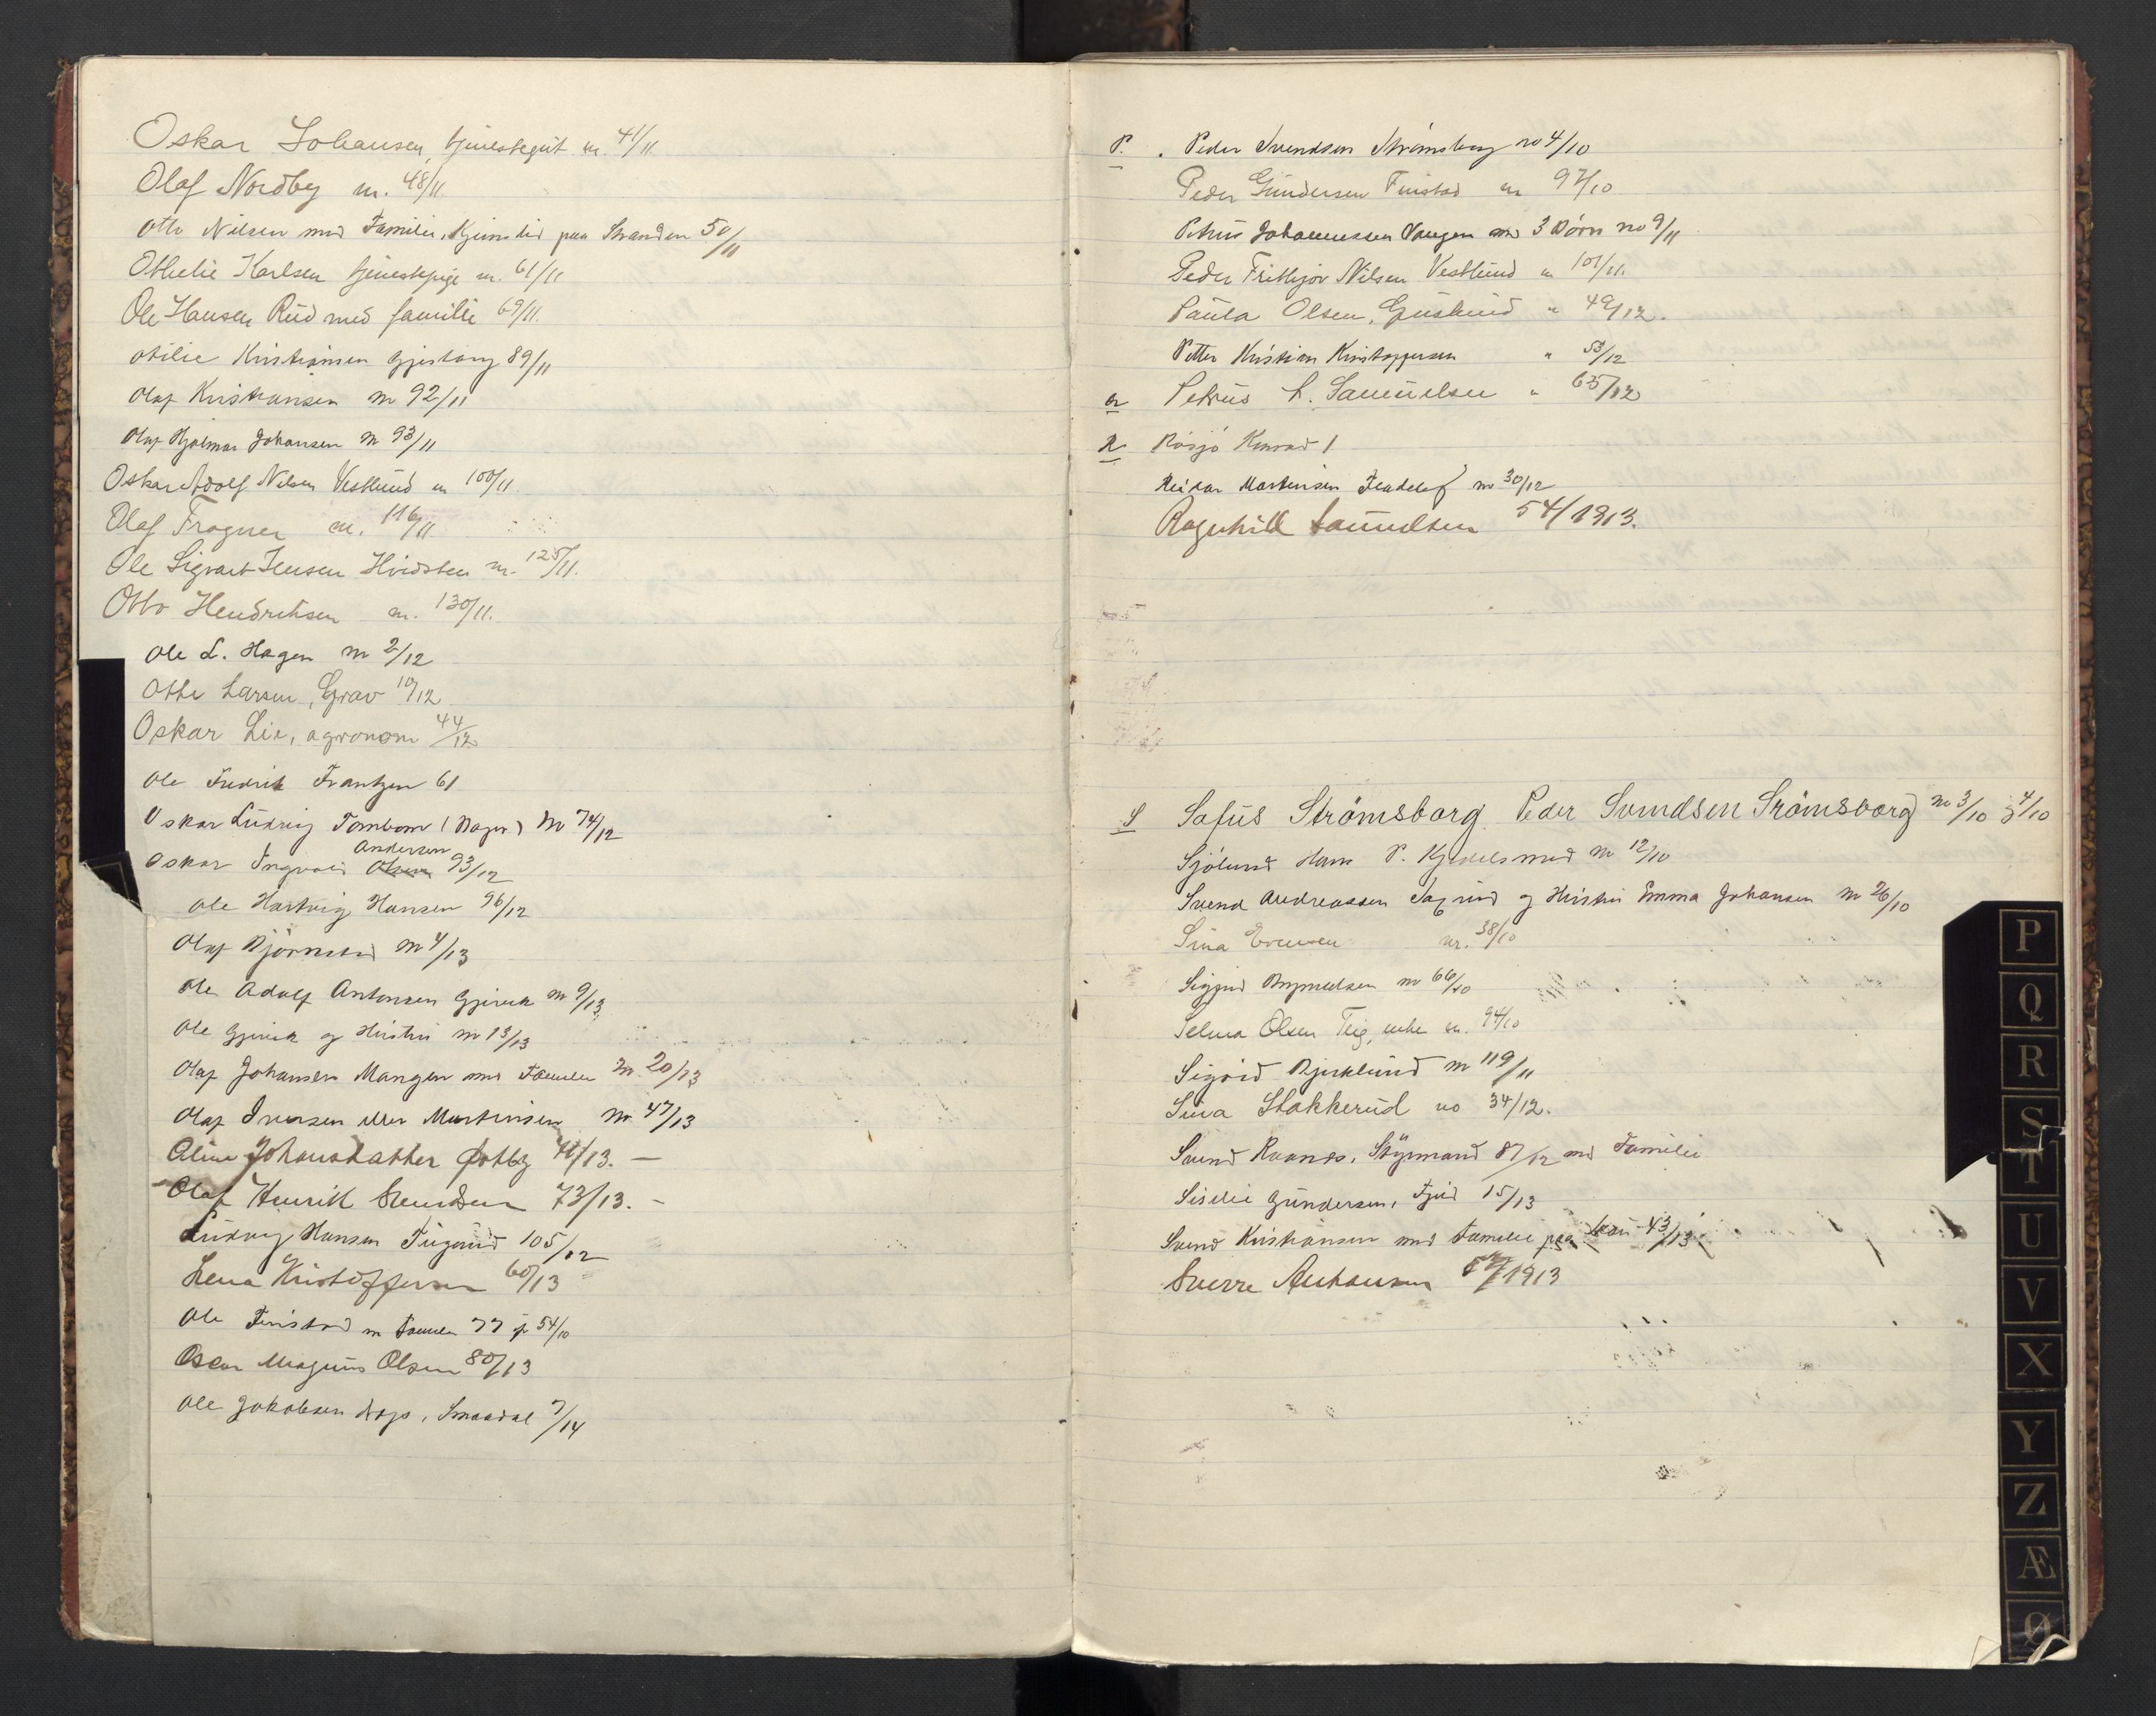 Oskar Johansen, tjenestegut nr. 41/11
Olaf Nordby nr. 48/11
Otto Nilsen med Familie, Kjinslid paa Stranden 50/11
Othelie Karlsen tjenestepige nr. 61/11
Ole Hansen Rüd med familie 69/11.
Otilie Kristiansen Gjestang 89/11
Olaf Kristiansen nr 92/11
Olaf Hjalmar Johansen nr 93/11
Oskar Adolf Nilsen Vestlund nr 100/11
Olaf Frogner nr. 116/11
Ole Sigvart Jensen Hvidsten nr. 125/11.
Otto Hendriksen nr. 130/11.
Ole L. Hagen nr 2/12
Otto Larsen, Grav 10/12
Oskar Lie, agronom 44/12
Ole Fredrik Frantzen 61
Oskar Ludvig Tombom (Bager) nr 74/12
Andersen
Oskar Ingvald Olsen 93/12
Ole Hartvig Hansen 96/12
Olaf Björnstad nr 4/13
Ole Adolf Antonsen Gjerek nr 9/13
Ole og Hustru nr 13/13
Olaf Johansen Mangen med Familie nr 20/13
Olaf Iversen eller Martinsen nr 47/13
Johansdatter 41/13. —
Olaf Henrik Svendsen 73/13. -
Ludvig Hansen 105/12
Lena Kristoffersen 60/13
Ole Finstad m Familie 77 jr 54/10
Oscar Magnus Olsen 80/13
Ole Jakobsen 7/14
P. . Peder Svendsen Strömsborg no 4/10
Peder Gundersen Finstad nr 97/10
Petrus Johannessen Vangen med 3 Börn no 9/11
Peder Frithjov Nilsen Vestlund nr 101/11.
Paula Olsen, " 49/12.
Petter Kristian Kristoffersen " 53/12
Petrus L. Samuelsen " 65/12
R Rösjö Konrad 1
Reidar Martinsen nr 30/12
Ragnhild Samuelsen 54/1913.
S Sofus Strömsborg Peder Svendsen Srömsborg no 3/10 4/10
Sjölund Hans P. Kjedelsmed nr 12/10
Svend Andreassen og Hustru Emma Johansen nr 26/10
Sina Evensen nr. 38/10
Sigurd Brynildsen nr 66/10
Selma Olsen Teig, enke nr. 94/10
Sigrid Bjerklund nr 119/11
Sina Stakkerud no 34/12.
Svend Raanes, Styrmand 87/12 med Familie
Siselie Gundersen, 15/13
Svend Kristiansen med Familie paa 43/13
Sverre 1913
P
Q
R
S
T
U
V
X
Y
Z
Æ
Ø